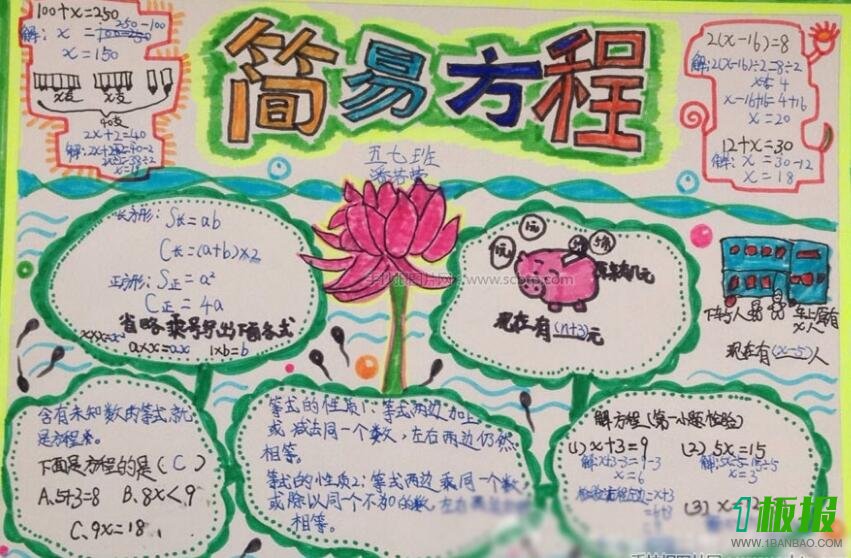 简易方程
五七班
100+x=250
解: x=
250-100
x=150
x支 x支
40支
2x+2=40
2(x-16)=8
解:2(x-16)÷2=8÷2
x-16+16=4+16
x=20
12+x=30
解: x=30-12
x=18
长方形: S长=ab
C长=(a+b)×2
正方形: S正=a²
C正=4a
省略乘号写出下面各式
a×x=ax 1×b=b
1元
5角
现在有(n+3)元
下车5人
车上原有x人
现在有(x-5)人
含有未知数的等式就
是方程
下面是方程的是(C)
A.5+3=8 B.8x<9
C.9x=18
等式的性质1:等式两边加上
或减去同一个数,左右两边仍然
相等。
等式的性质2:等式两边乘同一个数,
或除以同一个不为0的数,左右
相等。
解方程(第一小题检验)
(1)x+3=9 (2)5x=15
解:x+3-3=9-3 解:5x÷5=15÷5
x=6 x=3
=x+3
(3)
手抄报图片网 www.scbtp.com
1板报
WWW.1BANBAO.COM